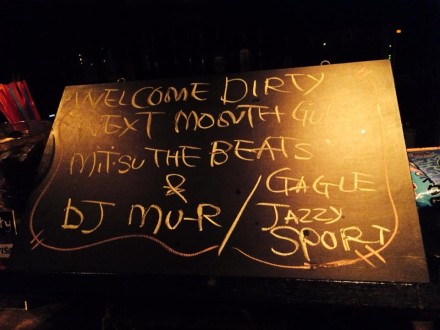 WELCOME DIRTY
NEXT MONTH GU
MITSU THE BEATS
&
DJ MU-R / GAGLE
JAZZY
SPORT